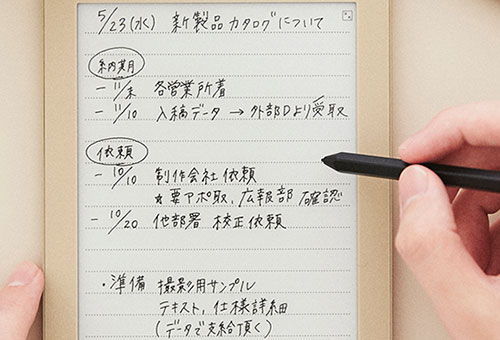 5/23(水) 新製品カタログについて
納期
- 11/末 各営業所着
- 11/10 入稿データ → 外部Dより受取
依頼
- 10/10 制作会社依頼
☆要アポ取、広報部 確認
- 10/20 他部署 校正依頼
・準備 撮影用サンプル
テキスト、仕様詳細
(データで支給頂く)